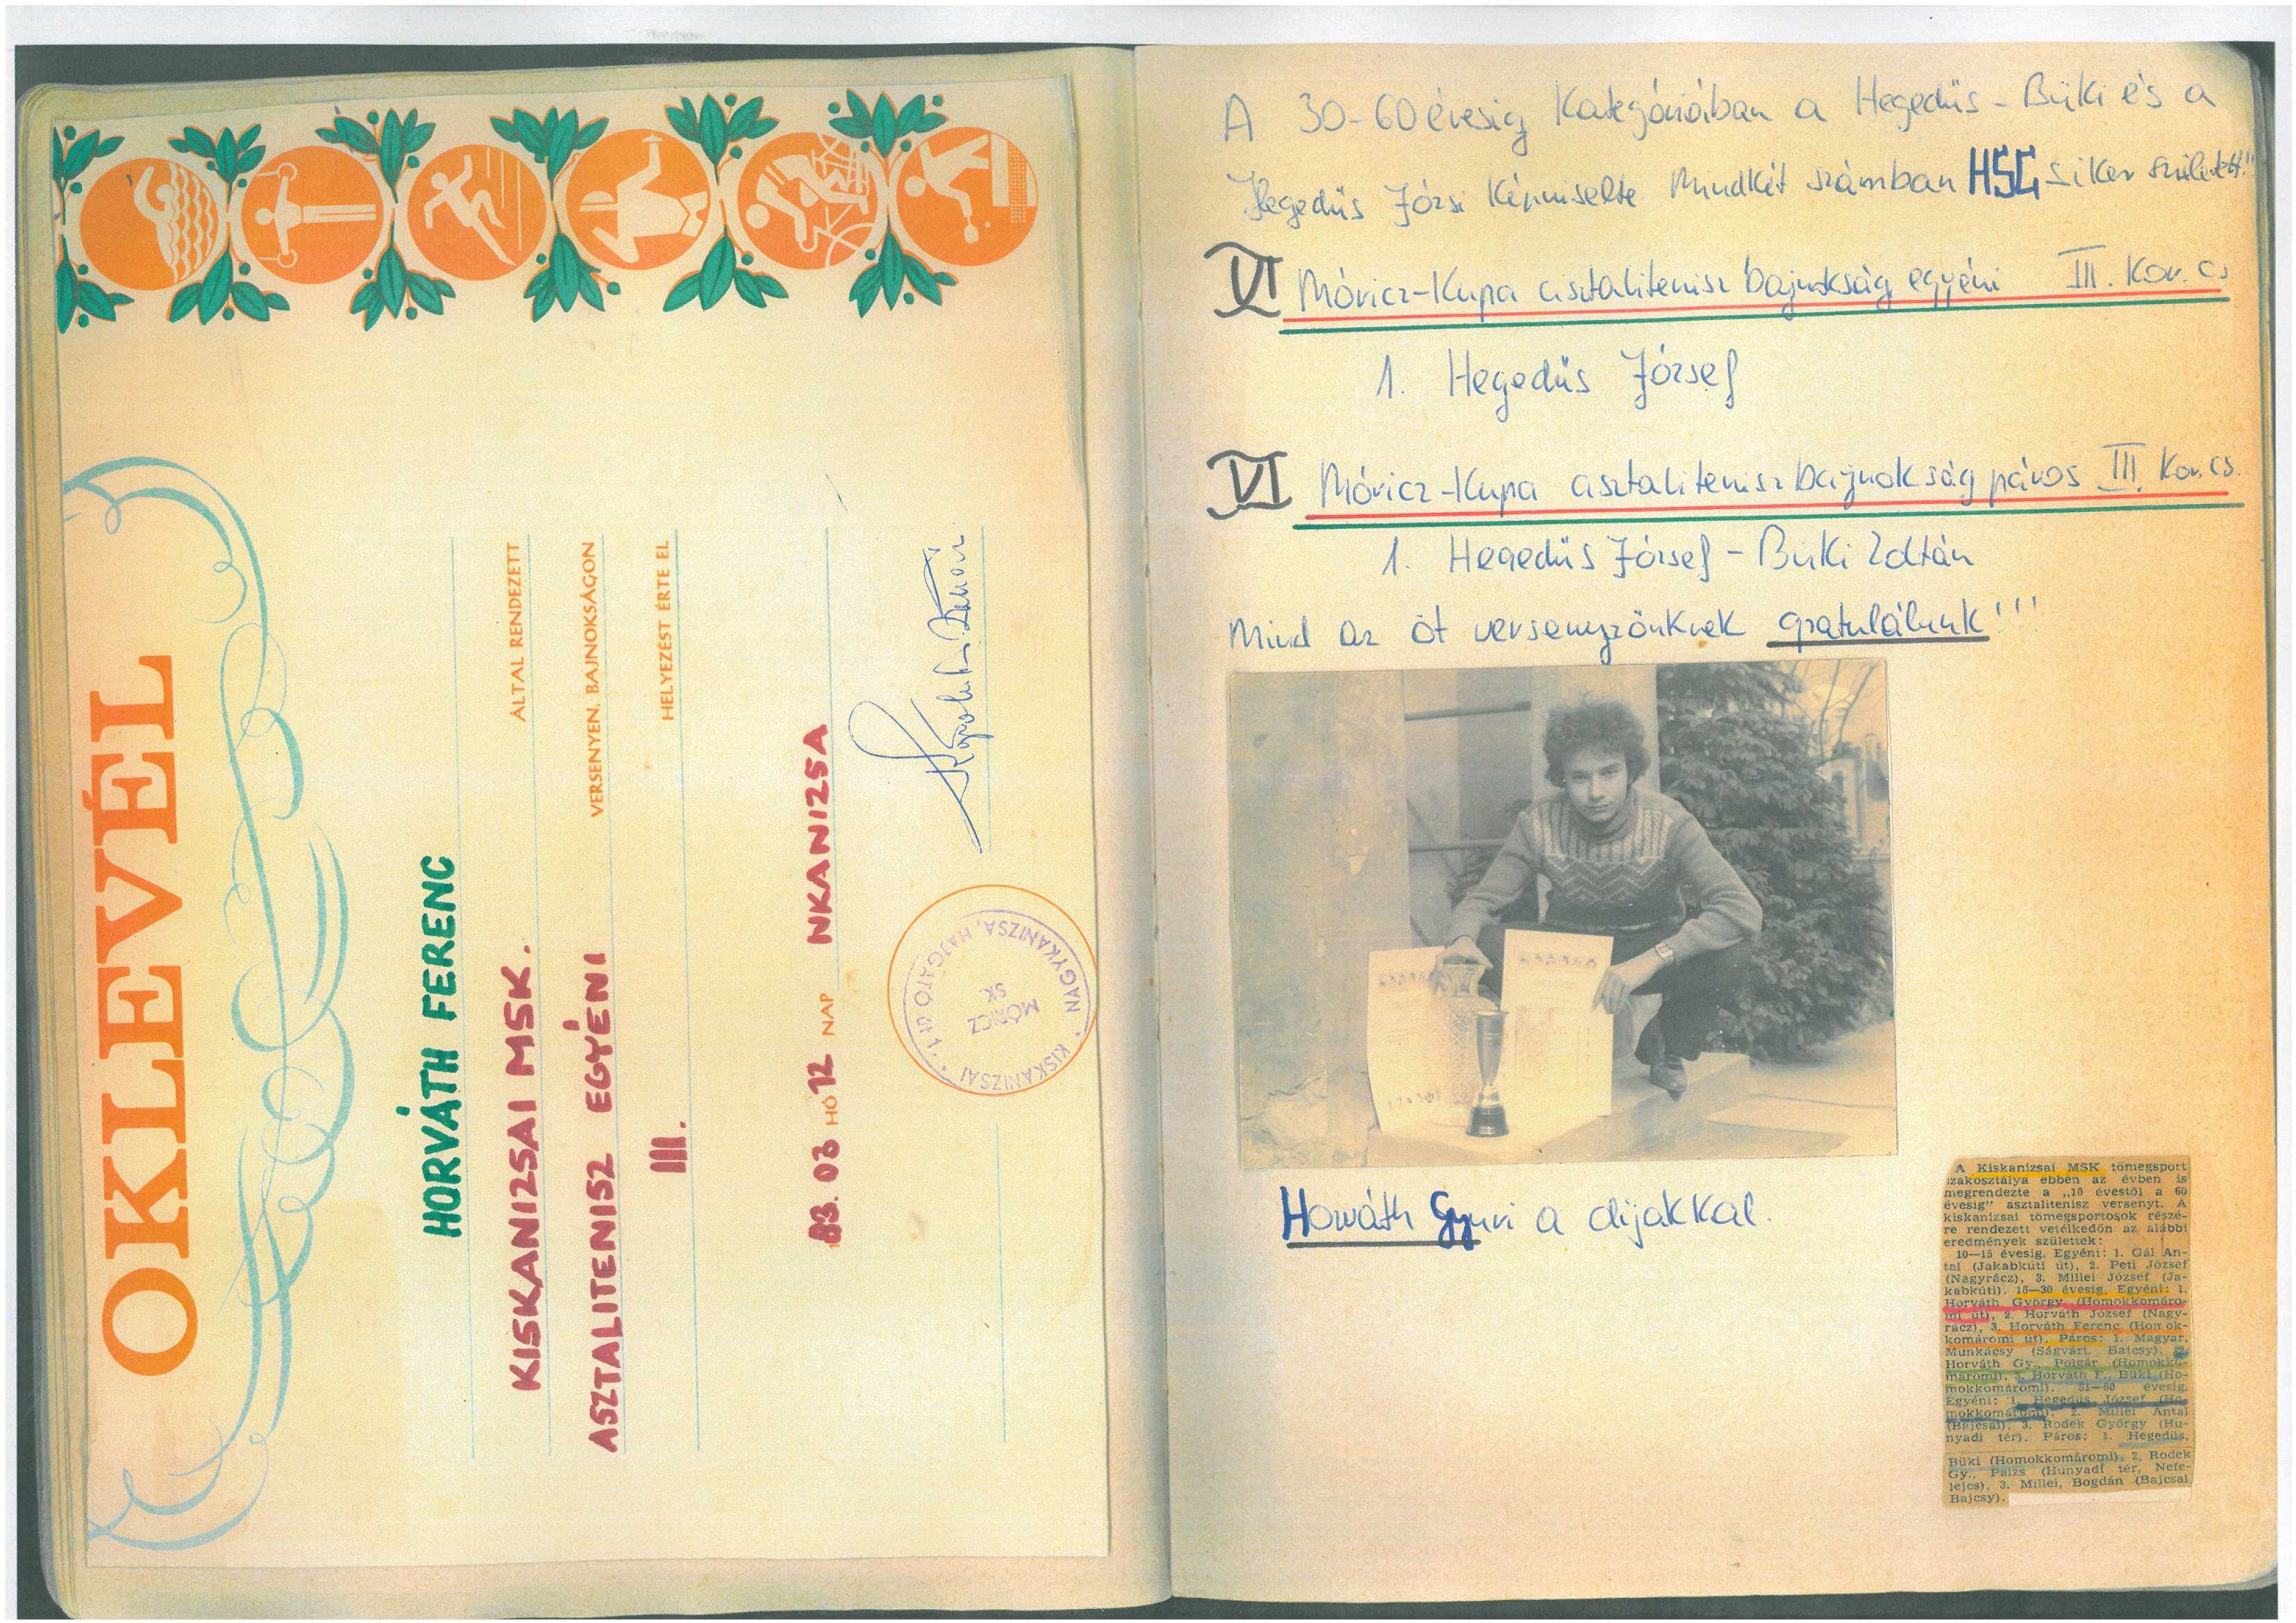 OKLEVÉL
HORVÁTH FERENC
KISKANIZSAI MSK. ÁLTAL RENDEZETT
ASZTALITENISZ EGYÉNI VERSENYEN, BAJNOKSÁGON
III. HELYEZÉST ÉRTE EL
83. 03 HÓ 12 NAP NKANIZSA
KISKANIZSAI
MÓRICZ
SK
NAGYKANIZSA, HAJGATÓ U. 1.
A 30-60 évesig Kategóriában a Hegedűs - Büki és a
Hegedűs Józsi Képviselte. Mindkét számban HSG siker született!!
VI Móricz-Kupa asztalitenisz bajnokság egyéni III. Kor. Cs
1. Hegedűs József
VI Móricz-Kupa asztalitenisz bajnokság páros III. Kor. cs.
1. Hegedűs József - Büki Zoltán
Mind az öt versenyzőnknek gratulálunk!!!
Horváth Gyuri a díjakkal.
A Kiskanizsai MSK tömegsport
szakosztálya ebben az évben is
megrendezte a „10 évestől a 60
évesig" asztalitenisz versenyt. A
kiskanizsai tömegsportosok részé-
re rendezett vetélkedőn az alábbi
eredmények születtek:
10—15 évesig. Egyéni: 1. Gál An-
tal (Jakabkúti út), 2. Peti József
(Nagyrácz), 3. Millei József (Ja-
kabkúti). 16—30 évesig. Egyéni: 1.
Horváth György (Homokkomáro-
mi út), 2. Horváth József (Nagy-
rácz), 3. Horváth Ferenc (Homok-
komáromi út). Páros: 1. Magyar,
Munkácsy (Ságvári, Bajcsy), 2.
Horváth Gy., Polgár (Homokko-
máromi), 3. Horváth F., Büki (Ho-
mokkomáromi). 31—60 évesig.
Egyéni: 1. Hegedűs József (Ho-
mokkomáromi), 2. Millei Antal
(Bajcsai) 3. Rodek György (Hu-
nyadi tér). Páros: 1. Hegedűs,
Büki (Homokkomáromi), 2. Rodek
Gy., Paizs (Hunyadi tér, Nefe-
lejcs), 3. Millei, Bogdán (Bajcsai
Bajcsy).